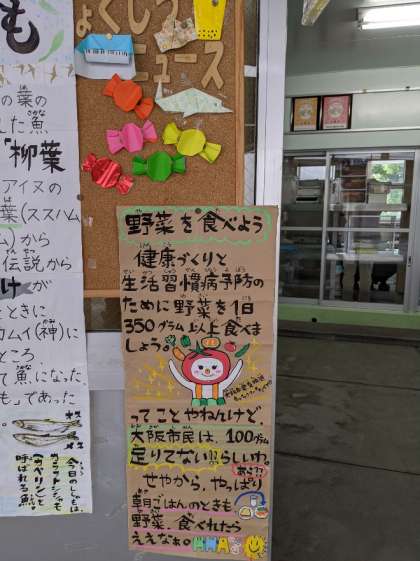 ょくしつ
ニュース
も
の葉の
した魚
「柳葉
アイヌの
葉(ススハム
ム)から
伝説から
けが
ときに
カムイ(神)に
ところ
て魚になった
も」であった
。
今日のししもは、
カラフトシシャモ
(カペリン)と
呼ばれる魚
野菜を食べよう
健康づくりと
生活習慣病予防の
ために野菜を1日
350グラム以上食べま
しょう。
ってことやねんけど、
大阪市民は、100グラム
足りてない!!らしいわ。
あっ?!
せやから、やっぱり
朝ごはんのときも
野菜、食べれたら
ええなぁ。